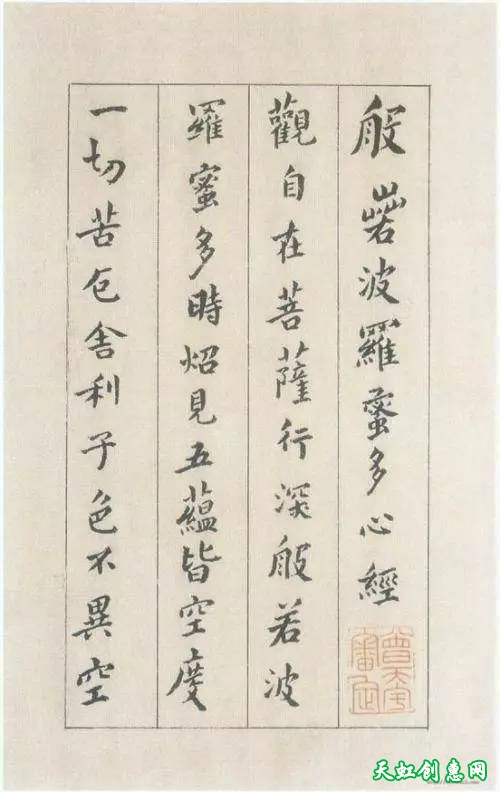 般若波羅蜜多心經
觀自在菩薩行深般若波
羅蜜多時炤見五蘊皆空度
一切苦厄舍利子色不異空
天虹创惠网